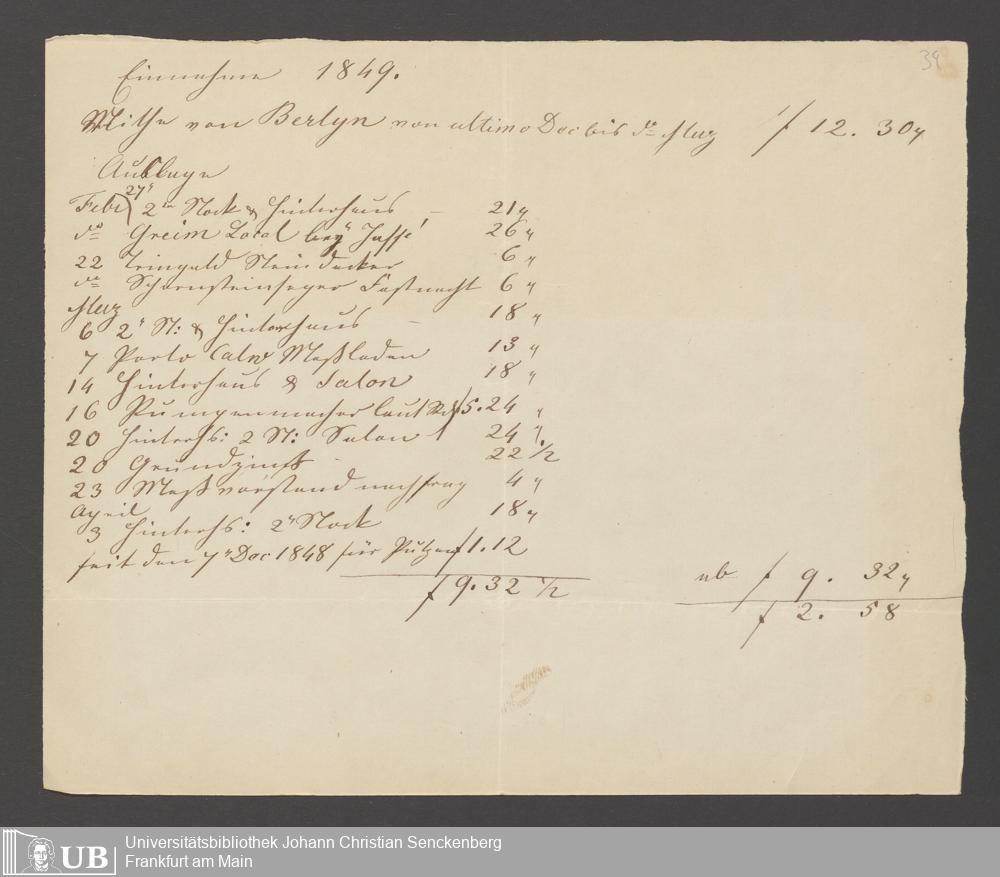 39
Einnahme 1849.
Miethe von Berlyn von ultimo Dec bis do Merz f 12. 30 "
Auslage
Febr 27" 2" Stock & Hinterhaus — 21 "
do Greim Local bey Jaffé 26 "
22 Tringeld Steindecker 6 "
do Schornsteinfeger Fastnacht 6 "
Merz
6 2" St: & Hinterhaus — 18 "
7 Porto Calw Meßladen 13 "
14 Hinterhaus & Salon 18 "
16 Pumpenmacher laut f 5. 24 "
20 Hinterhs: 2 St: Salon 24 "
20 Grundzinß 22 1/2
23 Meß vorstand nachfrag 4 "
April
3 Hinterhs: 2" Stock 18 "
seit den 7" Dec 1848 für Putzen f 1. 12
f 9. 32 1/2
ab f 9. 32 "
f 2. 58
UB
Universitätsbibliothek Johann Christian Senckenberg
Frankfurt am Main